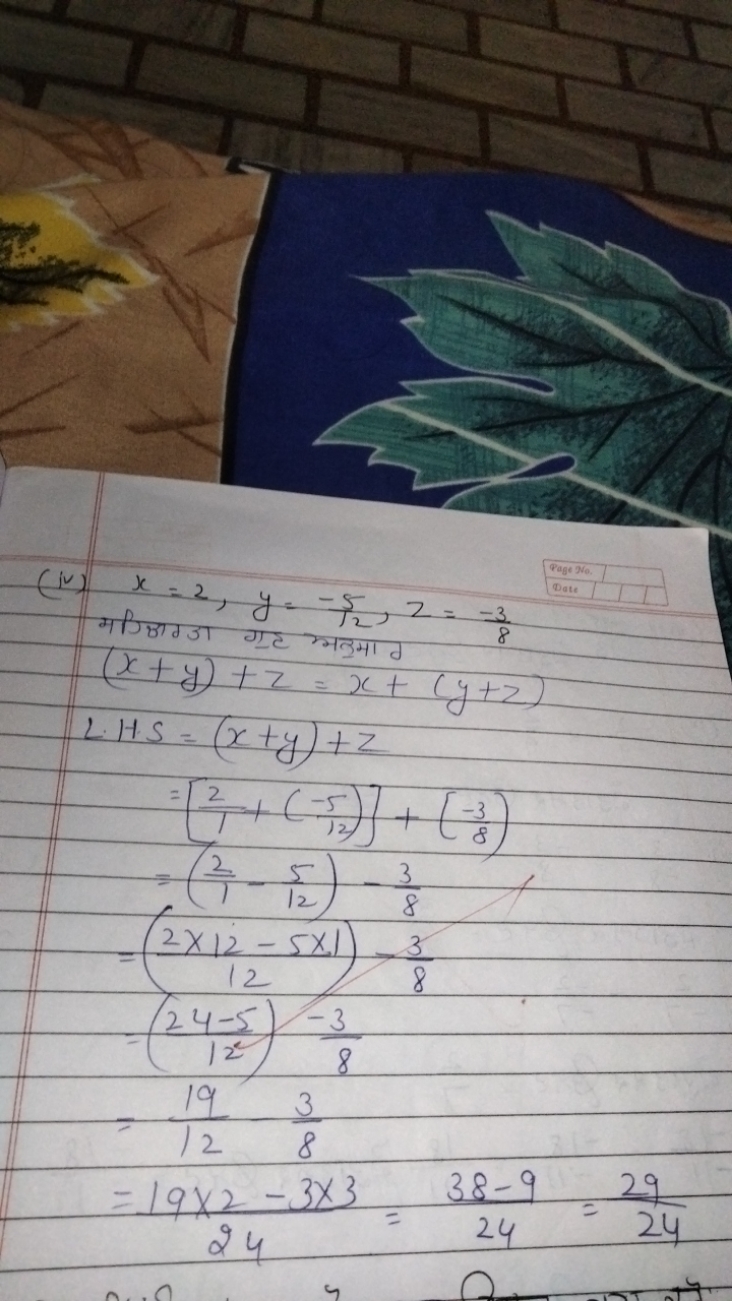 Page No.
Date
(iv) x = 2, y = -5/12, z = -3/8
(x+y) + z = x + (y+z)
L.H.S = (x+y)+z
= [2/1 + (-5/12)] + [-3/8)
= (2/1 - 5/12) - 3/8
= (2×12 - 5×1/12) - 3/8
= (24-5/12) -3/8
= 19/12 - 3/8
= 19×2 - 3×3/24 = 38-9/24 = 29/24